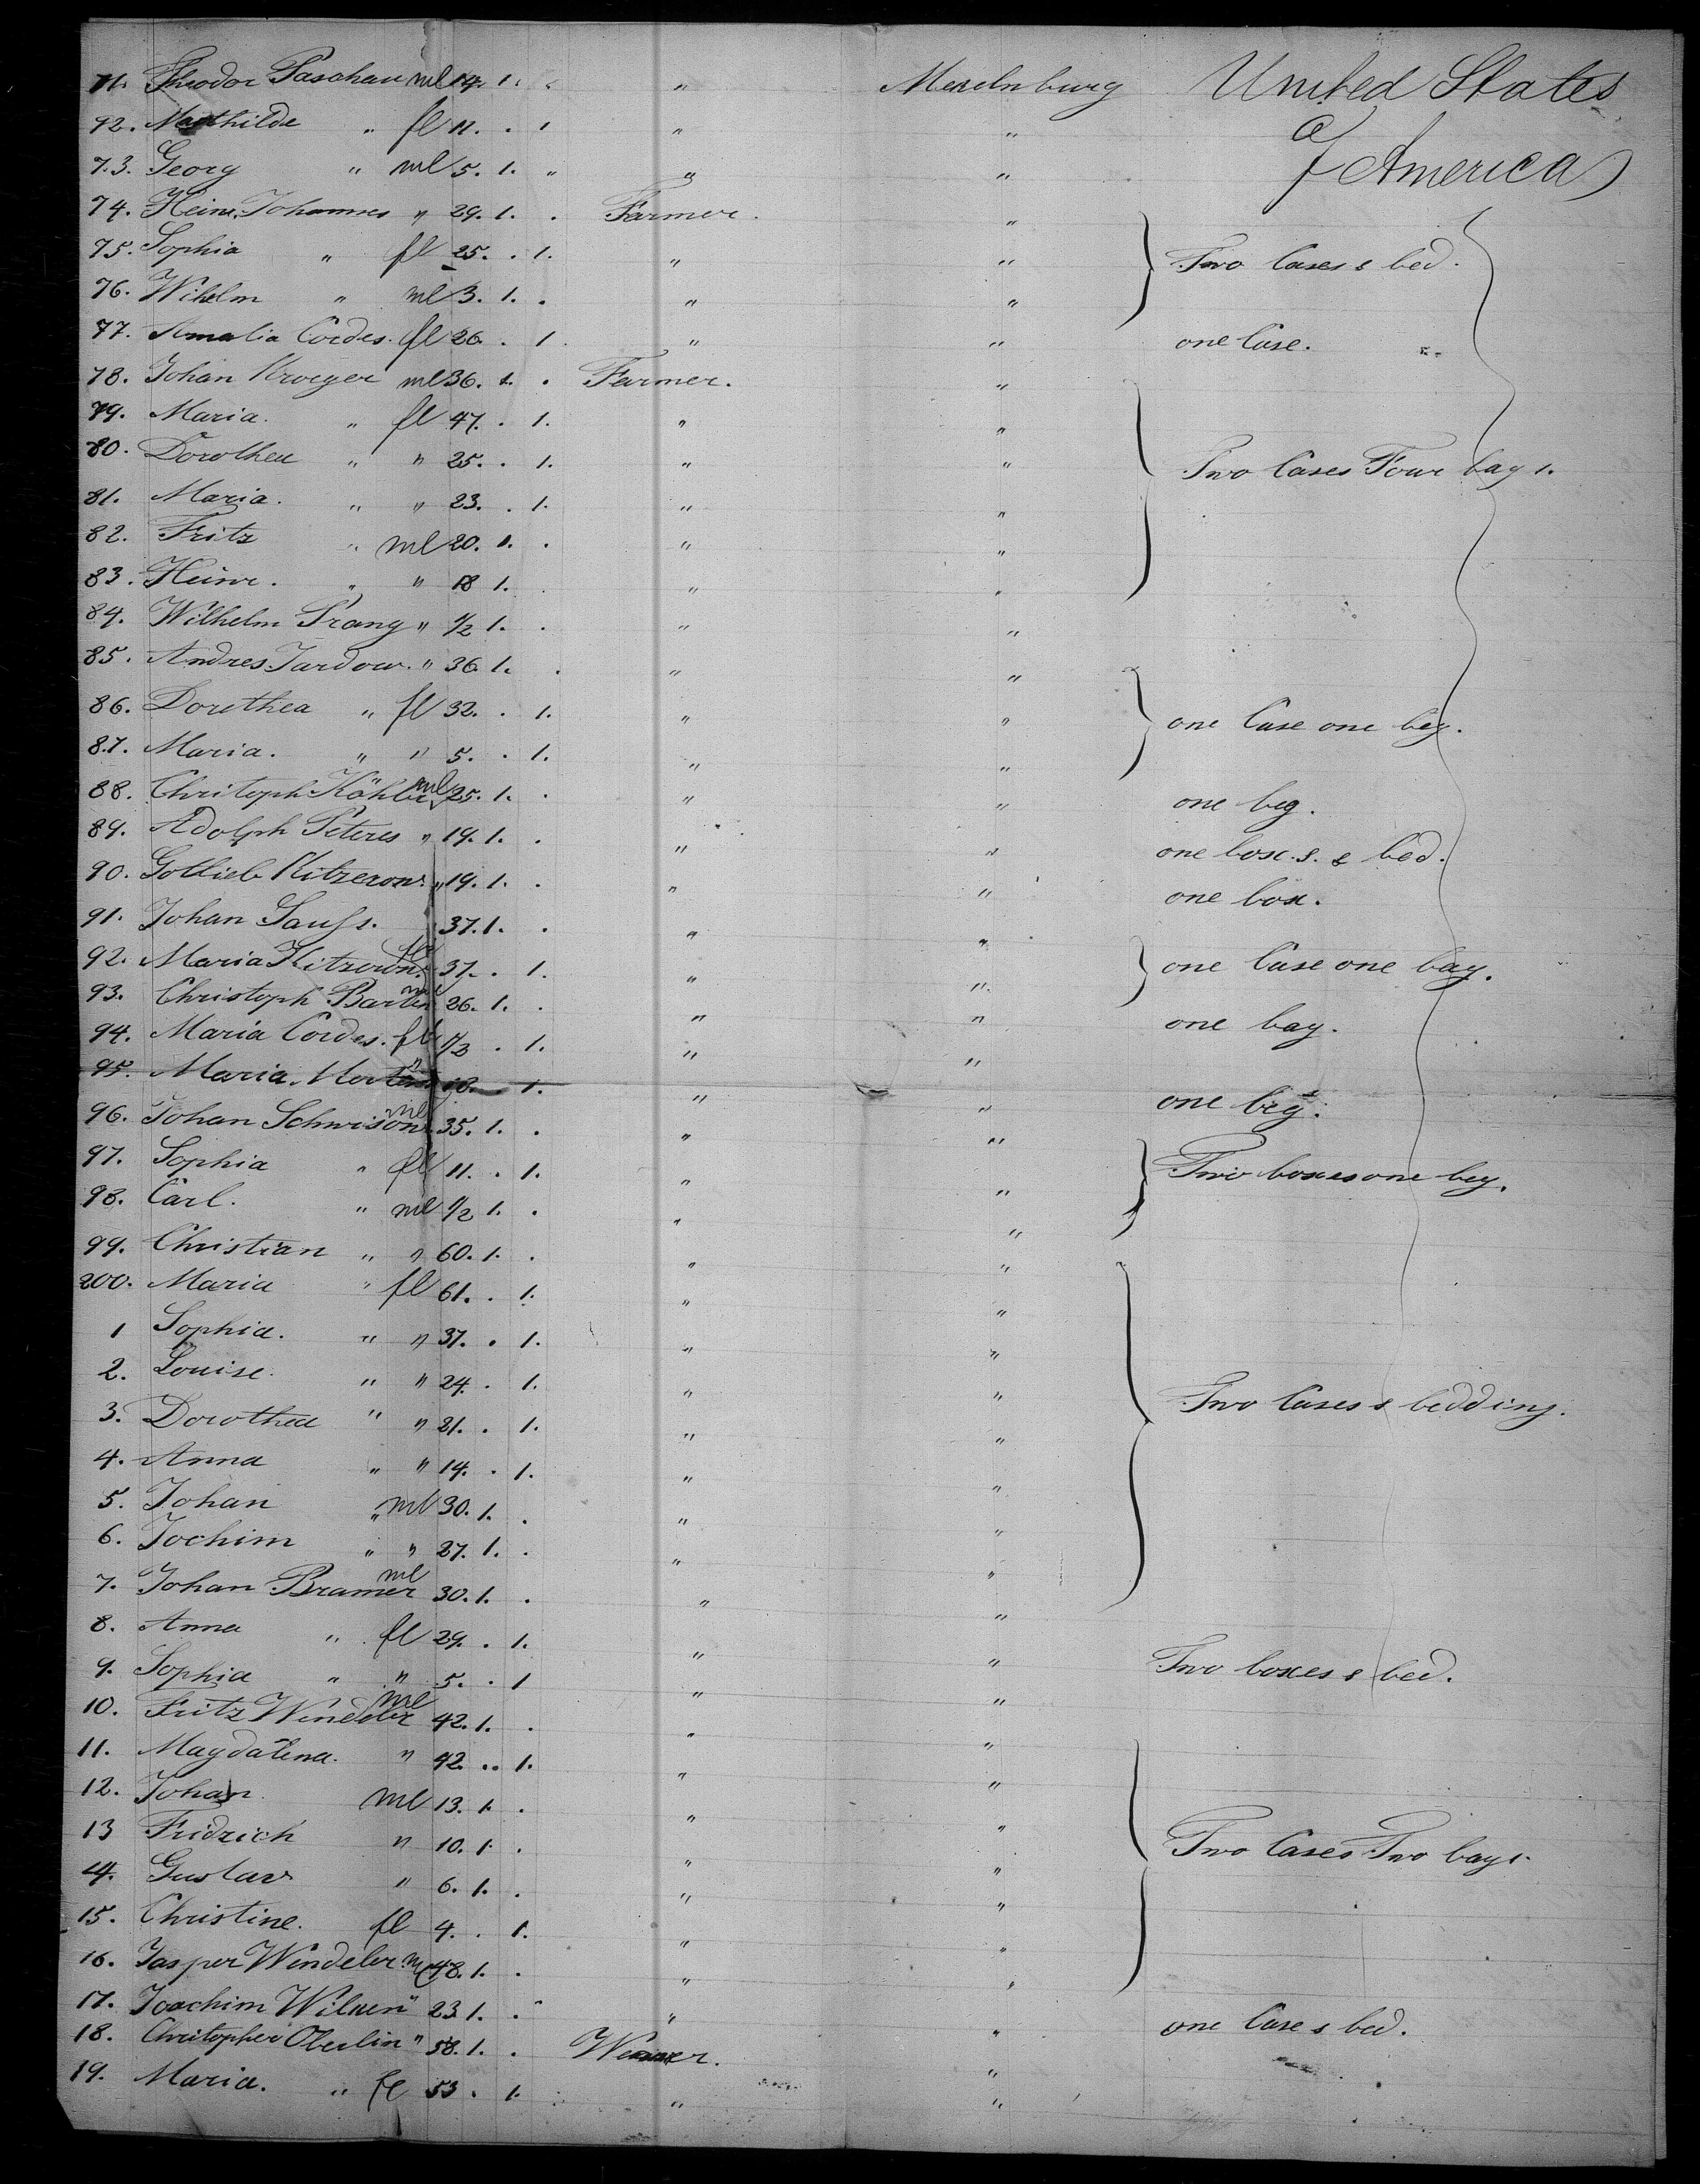 71. Theodor Paschau ml 14. 1. " " Mecelnburg United States
72. Mathilde " fl 11. . 1 " " of
73. Georg " ml 5. 1. " " " America
74. Heinr. Johannes " 29. 1. . Farmer. "
75. Sophia " fl 25. . 1. " " Two Cases & bed.
76. Wihelm " ml 3. 1. . " "
77. Amalia Cordes. fl 26. . 1. " " one Case.
78. Johan Kroeger ml 36. 1. . Farmer. "
79. Maria. " fl 47. . 1. " "
80. Dorothea " " 25. . 1. " " Two Cases Four bags.
81. Maria. " " 23. . 1. " "
82. Fritz " ml 20. 1. . " "
83. Heinr. " " 18 1. . " "
84. Wilhelm Prang " 1/2 1. . " "
85. Andres Jardow. " 36 1. . " "
86. Dorethea " fl 32. . 1. " " one Case one beg.
87. Maria. " " 5. . 1. " "
88. Chritoph Köhler ml 25. 1. . " " one beg.
89. Adolph Peteres " 19. 1. . " " one box. s. & bed.
90. Gotlieb Kitzerow. " 19. 1. . " " one box.
91. Johan Sauss. 37. 1. . " "
92. Maria Kitzerow. fl 37. . 1. " " one Case one bag.
93. Christoph Barten ml 26. 1. . " " one bag.
94. Maria Cordes. fl 1/3 . 1. " "
95. Maria " 18. 1. " " one beg.
96. Johan Schwison ml 35. 1. . " "
97. Sophia " fl 11. . 1. " " Two boxes one beg.
98. Carl. " ml 1/2 1. . " "
99. Christian " " 60. 1. . " "
200. Maria " fl 61. . 1. " "
1 Sophia. " " 37. . 1. " "
2. Louise. " " 24. . 1. " "
3. Dorothea " " 21. . 1. " " Two Cases & bedding.
4. Anna " " 14. . 1. " "
5. Johan " ml 30. 1. . " "
6. Jochim " " 27. 1. . " "
7. Johan Bramer ml 30. 1. . " "
8. Anna " fl 29. . 1. " "
9. Sophia " " 5. . 1 " " Two boxes & bed.
10. Fritz Windeler ml 42. 1. . " "
11. Magdalena. " 42. .. 1. " "
12. Johan ml 13. 1. . " "
13 Fridrich " 10. 1. . " " Two Cases Two bags.
14. Gustav " 6. 1. . " "
15. Christine. fl 4. . 1. " "
16. Jasper Windeler ml 48. 1. . " "
17. Joachim Wilken " 23 1. . " " one Case & bed.
18. Chritopher Oberlin " 58. 1. . "
19. Maria. " fl 53 . 1. " "